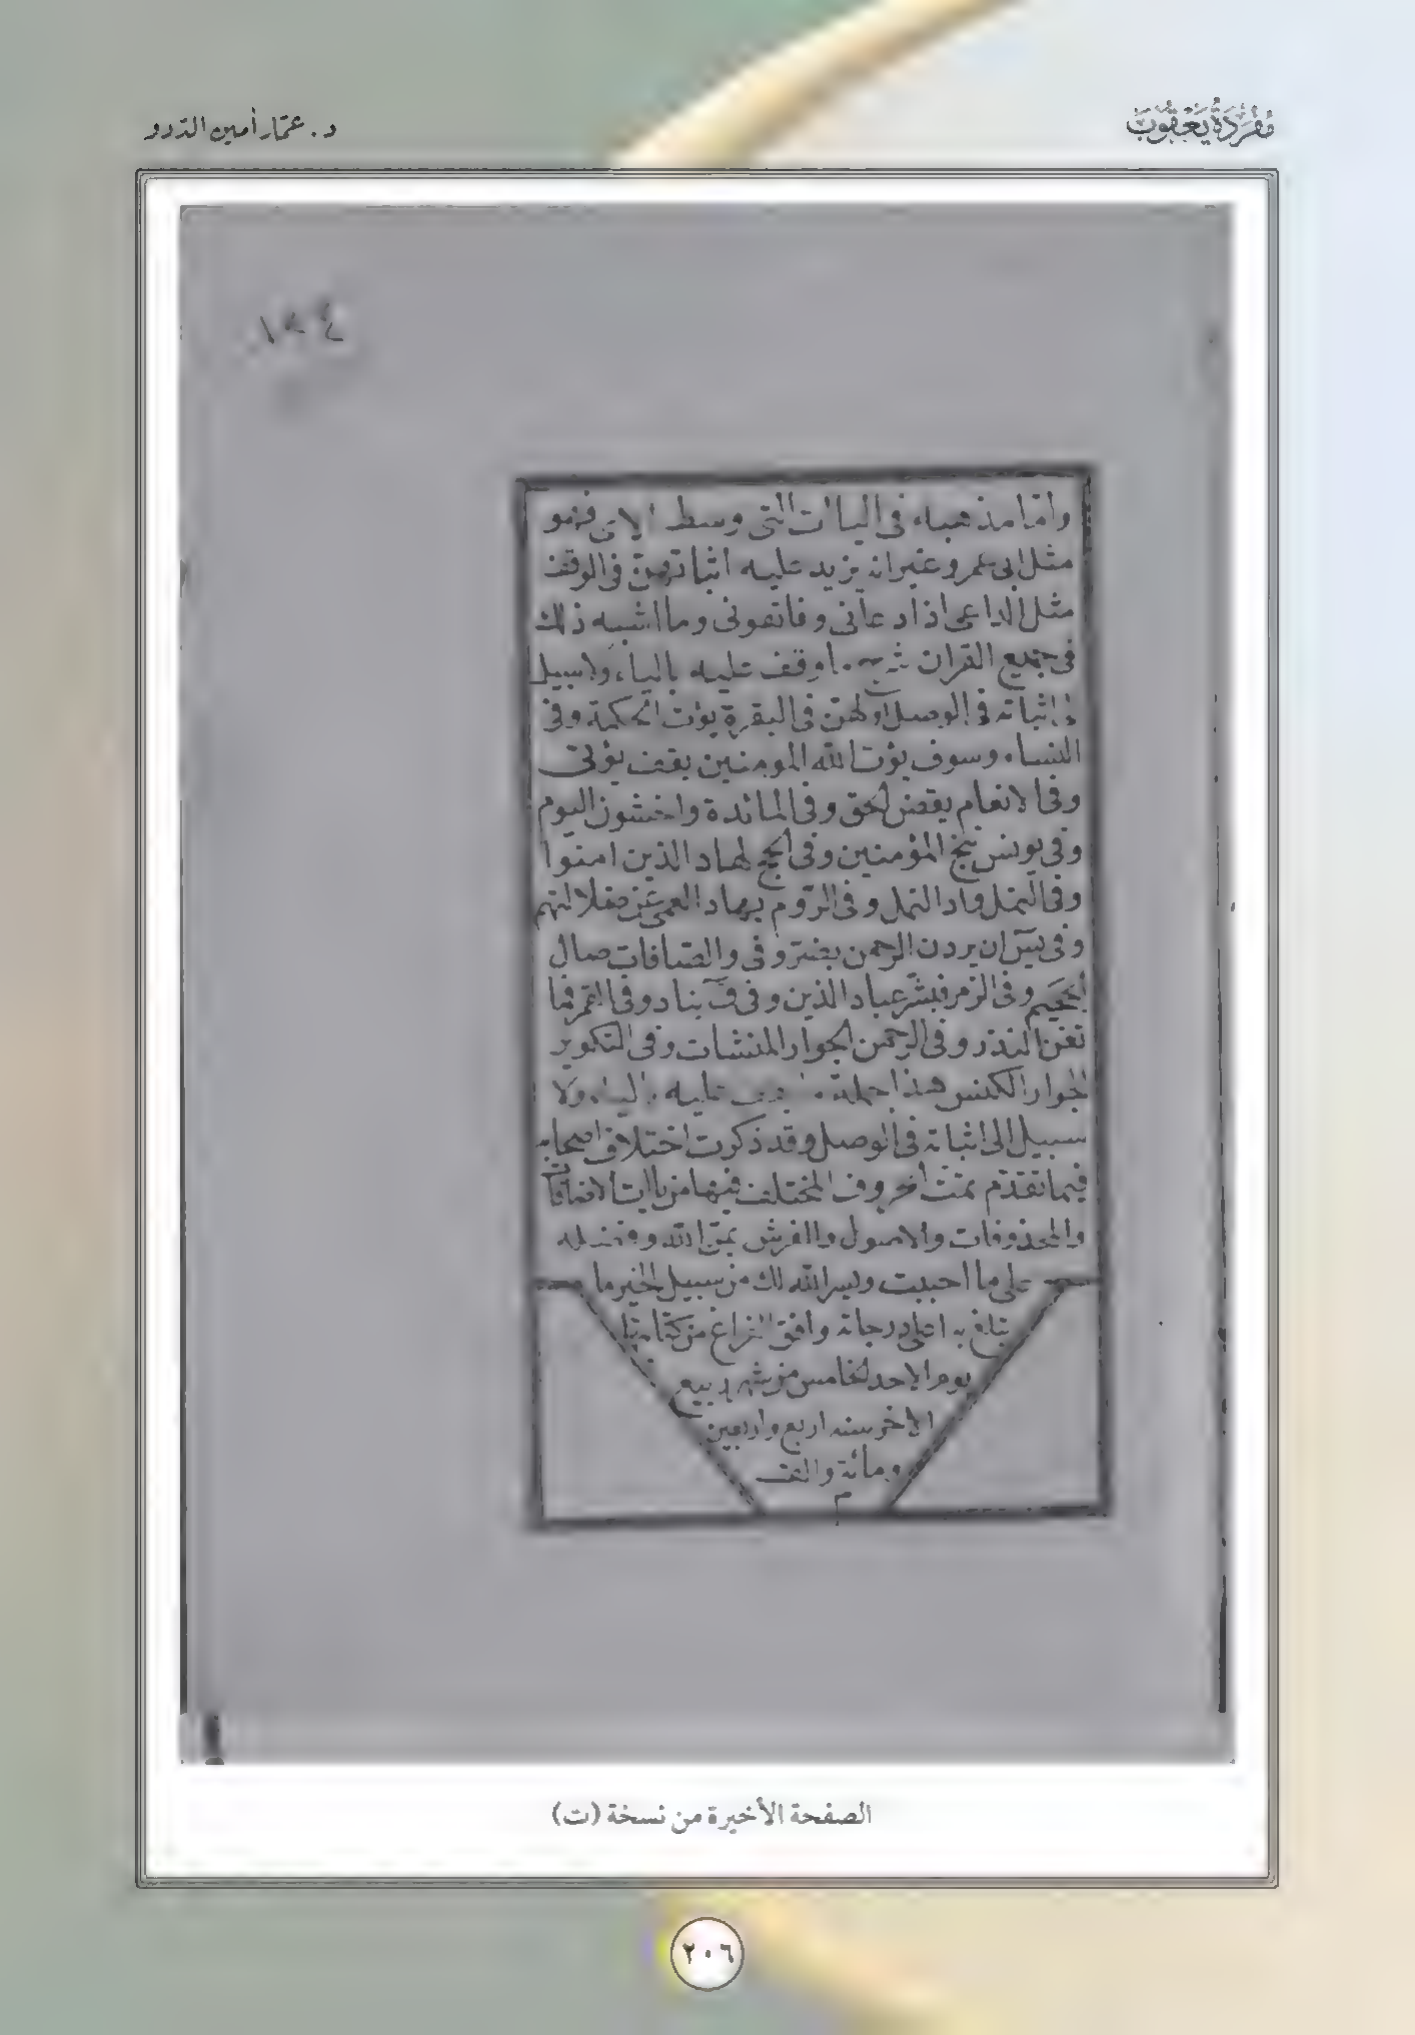 مُفْرَدَةُ يَعْقُوبَ
د. عمّار أمين الددو
١٣٤
واما مذهبه في الياات التي وسط الاي فهو
مثل ابي عمرو غير انه يزيد عليه اثباتهن في الوقف
مثل الداعي اذا دعاني وفاتقوني وما اشبه ذلك
في جميع القران وقف عليه بالياء ولا سبيل
اثباته في الوصل اولهن في البقرة يؤت الحكمة وفي
النساء وسوف يؤت الله المومنين يقف يؤتي
وفي الانعام يقض الحق وفي المائدة واخشون اليوم
وفي يونس ننج المؤمنين وفي الحج لهاد الذين امنوا
وفي النمل واد النمل وفي الروم بهاد العمي عن ضلالتهم
وفي يس ان يردن الرحمن بضر وفي والصافات صال
الجحيم وفي الزمر فبشر عباد الذين وفي ق يناد وفي القمر فما
تغن النذر وفي الرحمن الجوار المنشات وفي التكوير
الجوار الكنس هذا جملة عليه بالياء ولا
سبيل الى اثباته في الوصل وقد ذكرت اختلاف اصحابه
فيما تقدم تمت الحروف المختلف فيها من ياات الاضافات
والمحذوفات والاصول والفرش بمن الله وفضله
على ما احببت ويسر الله لك من سبيل الخير ما
تبلغ به اعلى درجاته وافق الفراغ من كتابتها
يوم الاحد الخامس من شهر ربيع
الاخر سنه اربع واربعين
ومائة والف
م
الصفحة الأخيرة من نسخة (ت)
٢٠٦